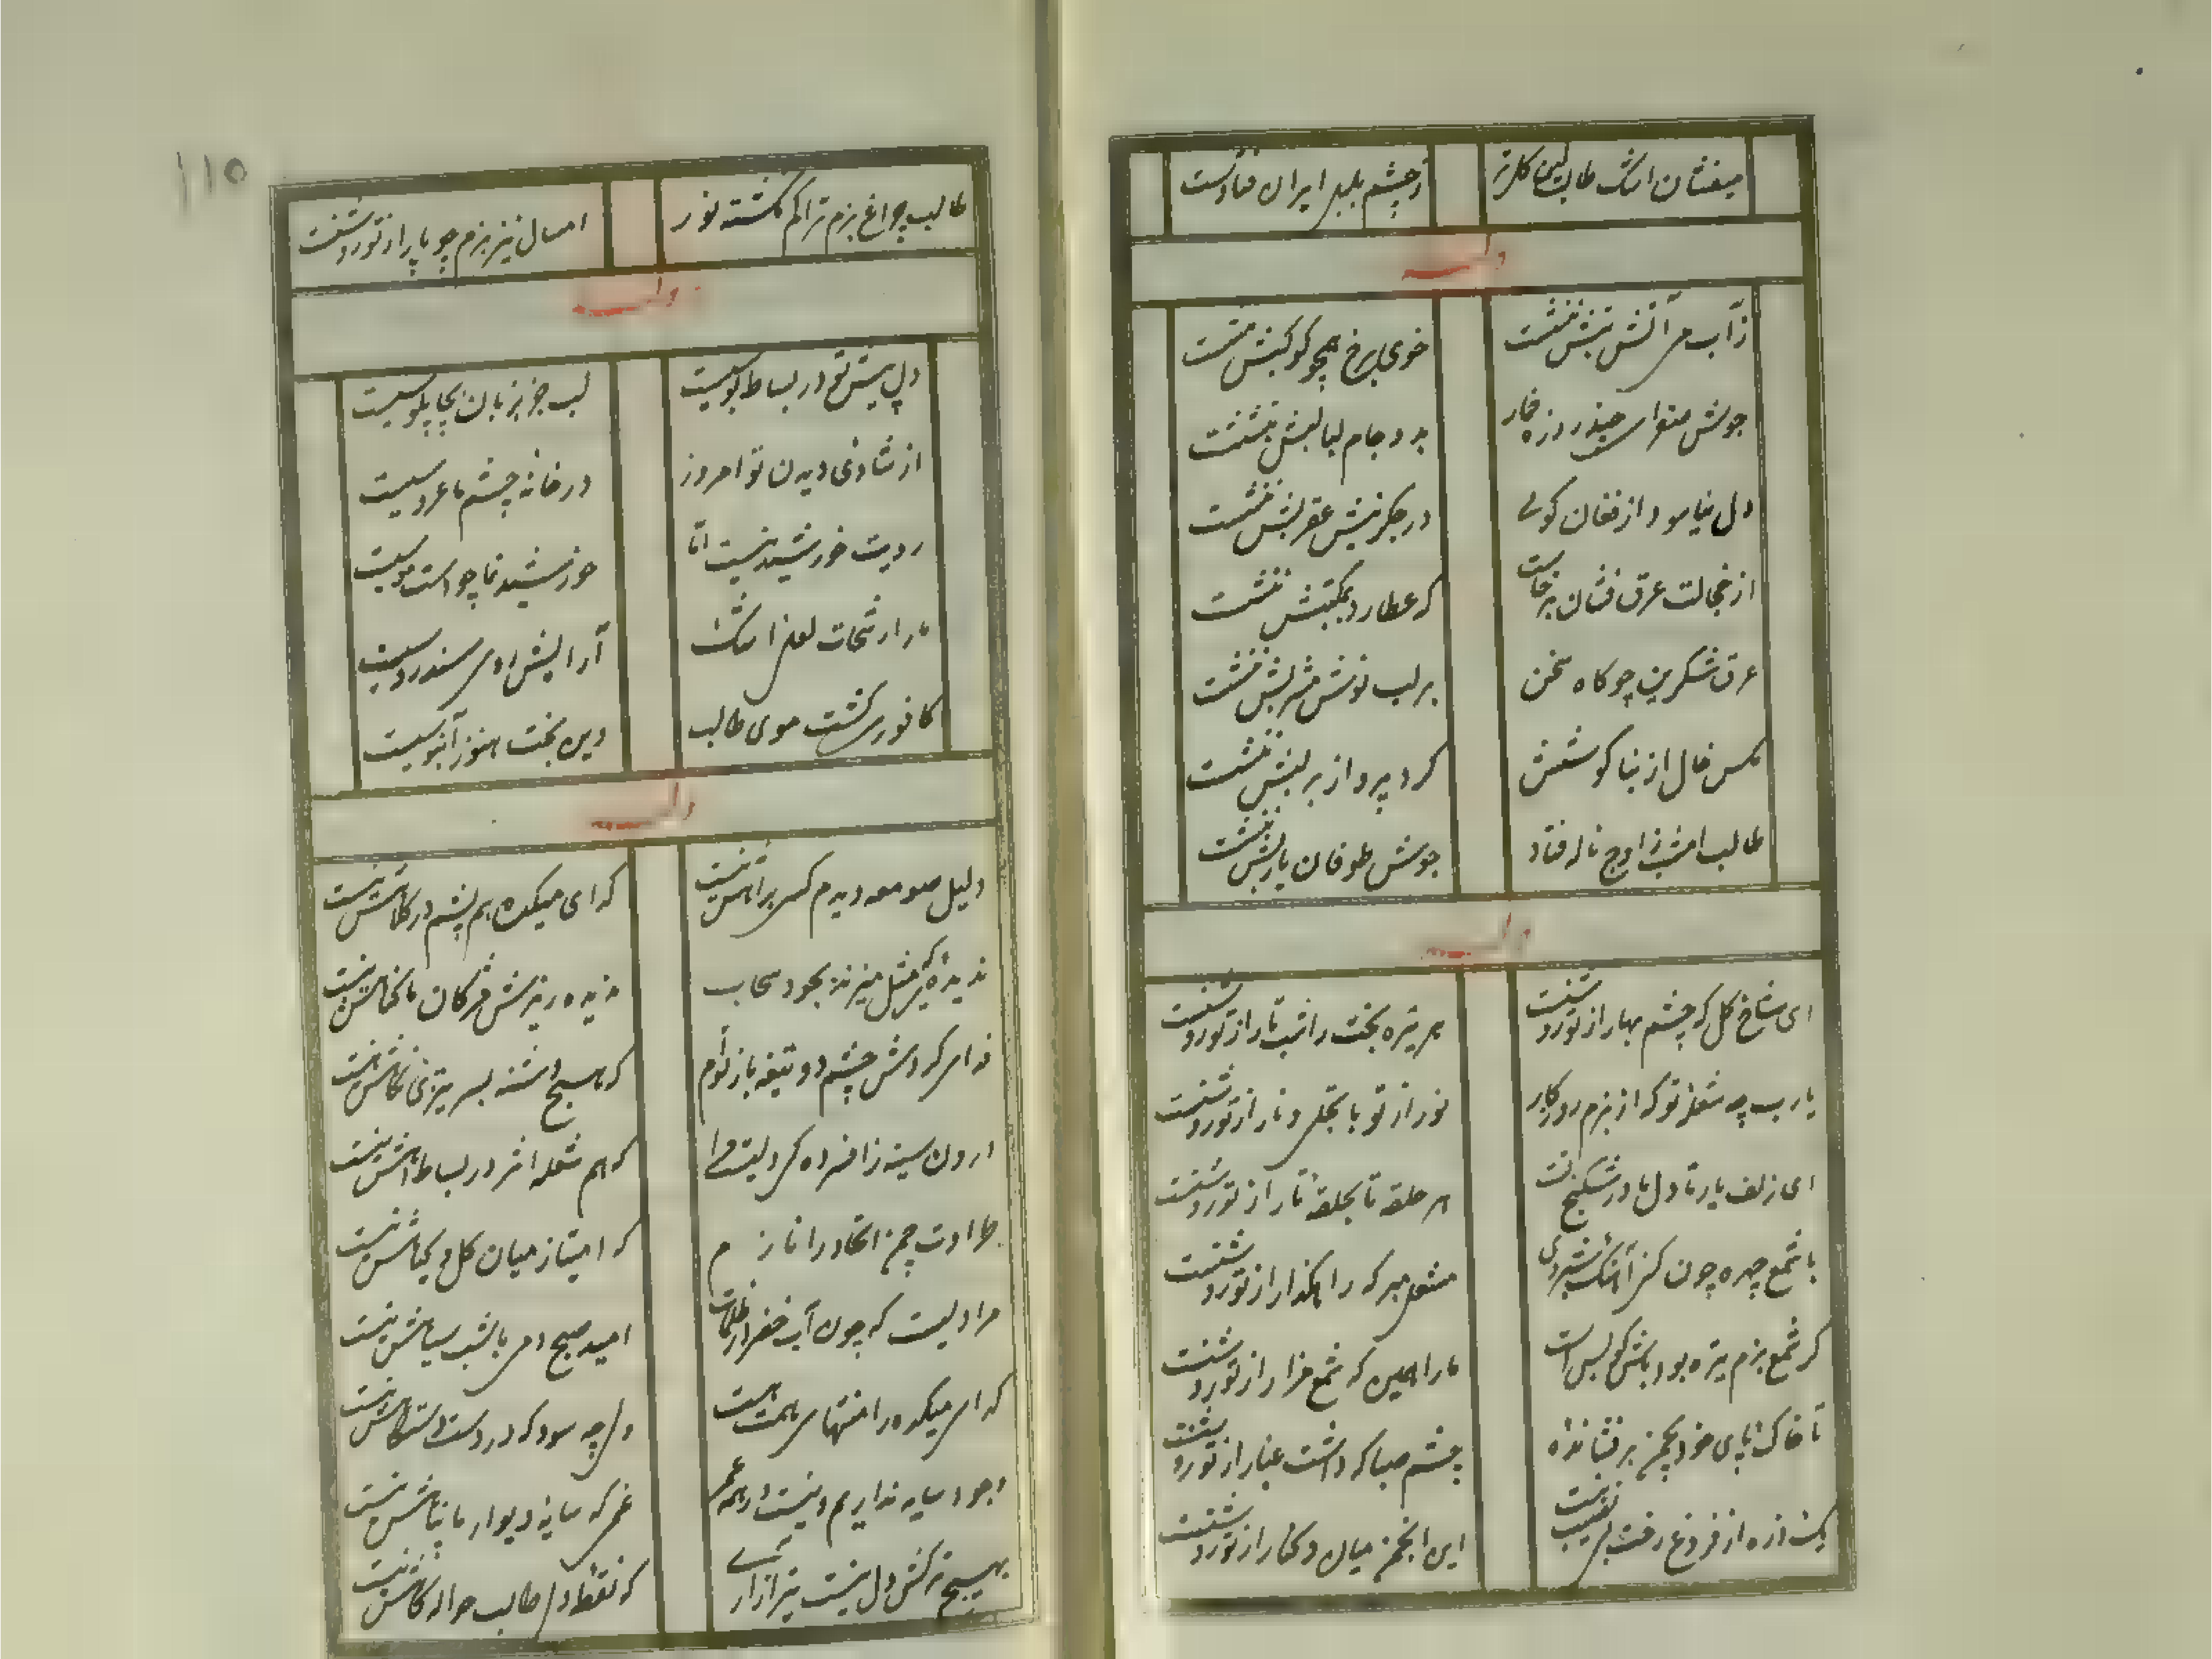 میفشان اشک طالب کلتر
ز چشم بلبل ایران فتادست
وله
ز آب می آتش تبش ننشست
خوی برخ همچو کوکبش ننشست
جوش صفرای چند روزه خمار
بدو جام لبالبش ننشست
دل نیاسود از فغان گوئی
در جگر نیش عقربش ننشست
از خجالت عرق فشان برخاست
که عطارد بمکتبش ننشست
عرق شکرین چو گاه سخن
بر لب نوش مشربش ننشست
مگس خال از بناگوشش
کرد پرواز بر لبش ننشست
طالب امشب ز اوج ناله فتاد
جوش طوفان یاربش ننشست
وله
ای شاخ گل که چشم بهار از تو روشنست
هر تیره بخت را شب تار از تو روشنست
یارب چه شعله تو که از بزم روزگار
نور از تو با تجلی و نار از تو روشنست
ای زلف یار تا دل ما در شکنج تست
هر حلقه تا بحلقه تار از تو روشنست
با شمع چهره چون کنی آهنگ شبروی
مشعل مبر که راهگذار از تو روشنست
گر شمع بزم تیره بود باش گو بس است
ما را همین که شمع مزار از تو روشنست
تا خاک پای خود بچمن برفشانده
چشم صبا که داشت غبار از تو روشنست
یک ذره از فروغ رخت بی نصیب نیست
این انجمن میان و کنار از تو روشنست
۱۱۵
طالب چراغ بزم تراکم نگشته نور
امسال نیز بزم چو پار از تو روشنست
وله
دل پیش تو در بساط بوسیست
لب جز بزبان بچاپلوسیست
از شادی دیدن تو امروز
در خانه چشم ما عروسیست
رویت خورشید نیست اما
خورشید نما چو است موسیست
ما را رشحات لعلی اشک
آرایش روی سندروسیست
کافوری گشت موی طالب
وین بخت هنوز آبنوسیست
وله
دلیل صومعه دیدم کسی براهش نیست
گدای میکده هم پشم در کلاهش نیست
ندیده که مثل میزند بجود سحاب
ندیده ریزش مژگان ما گناهش نیست
فدای گردش چشم دو تیغه باز توام
که هیچ دشنه بسر تیزی نگاهش نیست
درون سینه ز افسرده گی دلیست مرا
که هم شعله اثر در بساط آهش نیست
طراوت چمن اتحاد را نازم
که امتیاز میان گل و گیاهش نیست
مرا دلیست که چون آب خضر از ظلمات
امید صبح دمی با شب سیاهش نیست
گدای میکده را منتهای همت هست
ولی چه سود که در دست دستگاهش نیست
وجود سایه نداریم و نیست در همه عمر
غمی که سایه دیوار ما پناهش نیست
بهیچ ترکش دل نیست تیر آزاری
که نقطه دل طالب حواله گاهش نیست